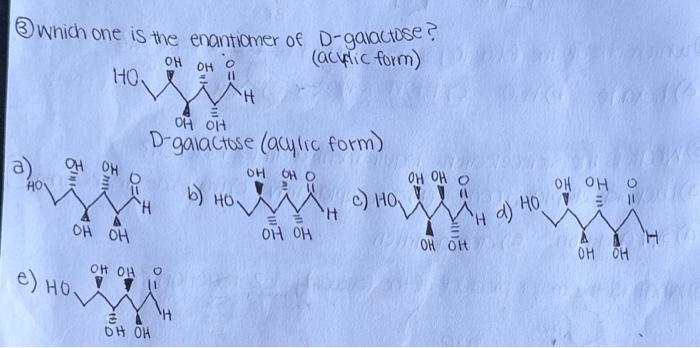 ③ which one is the enantiomer of D-galactose?
(acyclic form)
OH OH O
HO H
OH OH
D-galactose (acylic form)
a) OH OH O
HO H
OH OH
b) OH OH O
HO H
OH OH
c) OH OH O
HO H
OH OH
d) OH OH O
HO H
OH OH
e) OH OH O
HO H
OH OH